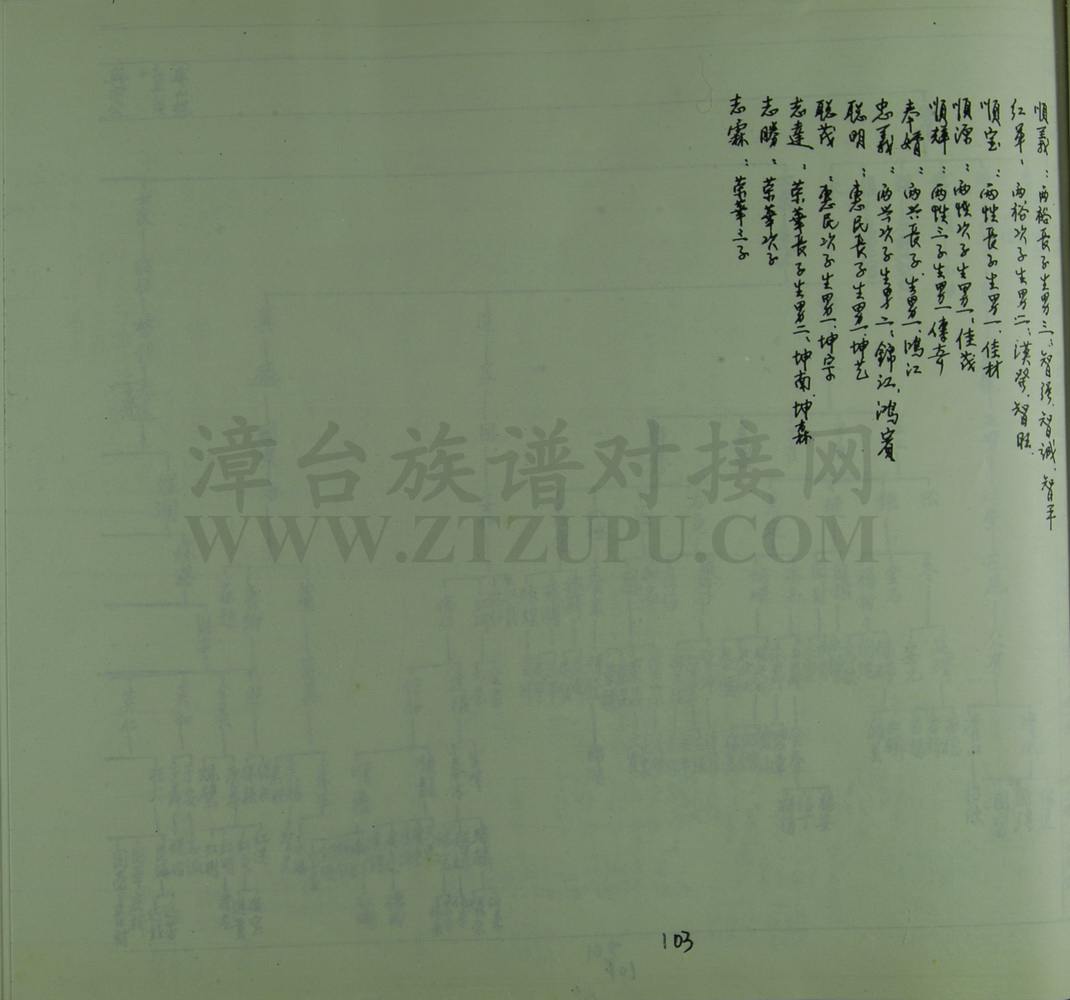 順義：両裕長子生男三，智强、智誠、智平
红軍：両裕次子生男二，漢榮、智旺
順宝：両性長子生男一，佳材
順源：両性次子生男一，佳茂
順輝：両性三子生男一，偉奇
奉婿：両興長子，生男一，鴻江
忠義：両興次子生男二，錦江，鴻賓
聪明：惠民長子生男一，坤艺
聪茂：惠民次子生男一，坤宗
志達：荣華長子生男二，坤南、坤森
志勝：荣華次子
志霖：荣華三子
漳台族谱对接网
WWW.ZTZUPU.COM
103